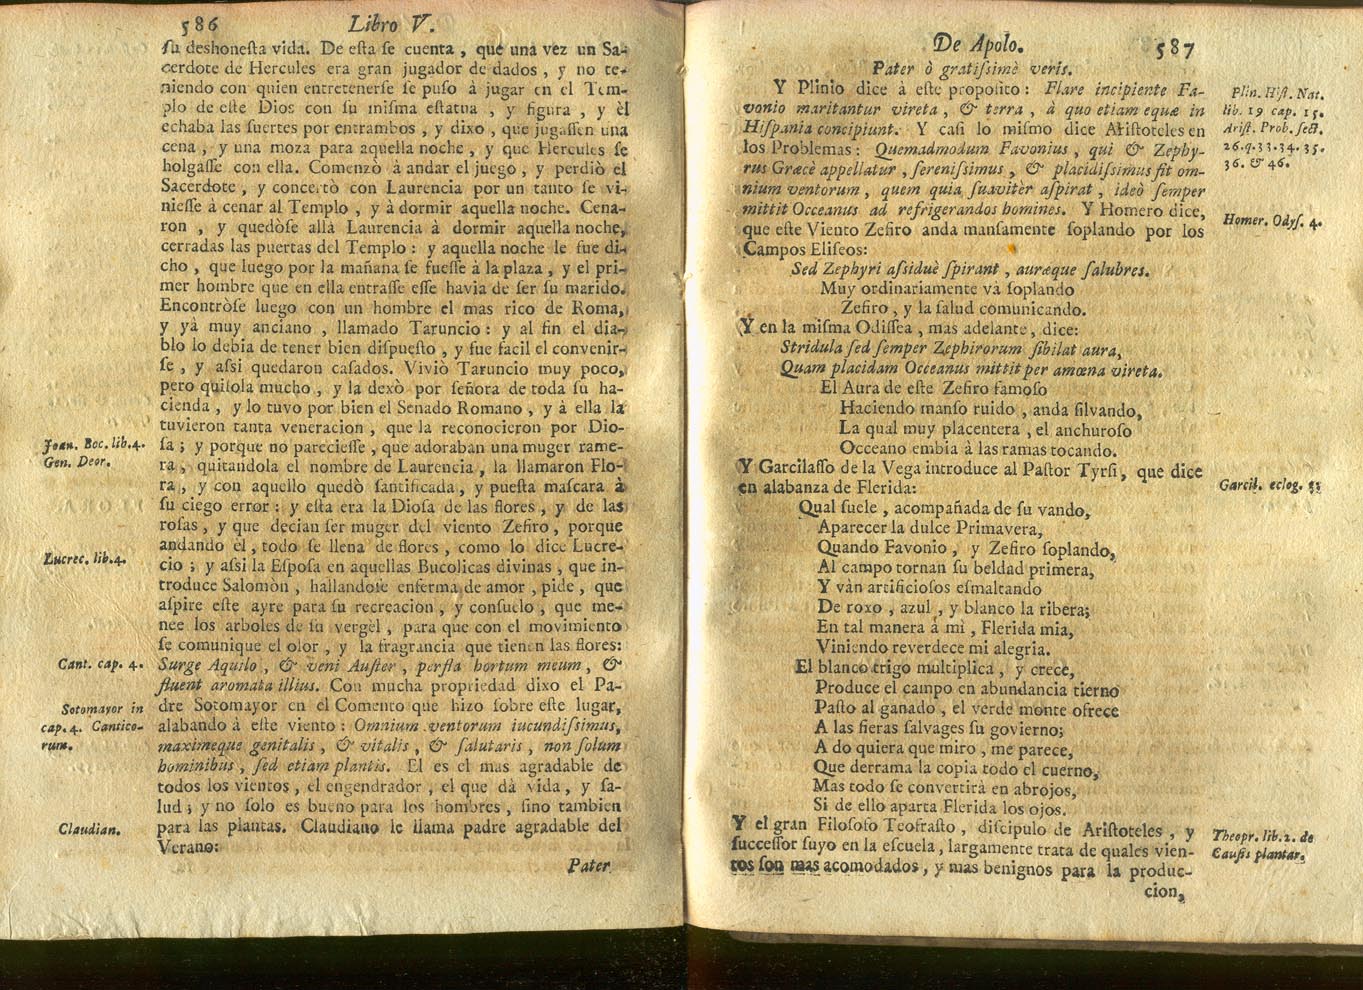 586 Libro V.
ſu deshoneſta vida. De eſta ſe cuenta, que una vez un Sa-
cerdote de Hercules era gran jugador de dados, y no te-
niendo con quien entretenerſe ſe puſo à jugar en el Tem-
plo de eſte Dios con ſu miſma eſtatua, y figura, y èl
echaba las ſuertes por entrambos, y dixo, que jugaſſen una
cena, y una moza para aquella noche, y que Hercules ſe
holgaſſe con ella. Comenzò à andar el juego, y perdiò el
Sacerdote, y concertò con Laurencia por un tanto ſe vi-
nieſſe à cenar al Templo, y à dormir aquella noche. Cena-
ron, y quedòſe allà Laurencia à dormir aquella noche,
cerradas las puertas del Templo: y aquella noche le fue di-
cho, que luego por la mañana ſe fueſſe à la plaza, y el pri-
mer hombre que en ella entraſſe eſſe havia de ſer ſu marido.
Encontròſe luego con un hombre el mas rico de Roma,
y yà muy anciano, llamado Taruncio: y al fin el dia-
blo lo debia de tener bien diſpueſto, y fue facil el convenir-
ſe, y aſsi quedaron caſados. Viviò Taruncio muy poco,
pero quiſola mucho, y la dexò por ſeñora de toda ſu ha-
cienda, y lo tuvo por bien el Senado Romano, y à ella la
tuvieron tanta veneracion, que la reconocieron por Dio-
Joan. Boc. lib. 4. Gen. Deor.
ſa; y porque no parecieſſe, que adoraban una muger rame-
ra, quitandola el nombre de Laurencia, la llamaron Flo-
ra, y con aquello quedò ſantificada, y pueſta maſcara à
ſu ciego error: y eſta era la Dioſa de las flores, y de las
roſas, y que decian ſer muger del viento Zefiro, porque
andando èl, todo ſe llena de flores, como lo dice Lucre-
Lucrec. lib. 4.
cio; y aſsi la Eſpoſa en aquellas Bucolicas divinas, que in-
troduce Salomòn, hallandoſe enferma de amor, pide, que
aſpire eſte ayre para ſu recreacion, y conſuelo, que me-
nee los arboles de ſu vergèl, para que con el movimiento
ſe comunique el olor, y la fragrancia que tienen las flores:
Cant. cap. 4.
Surge Aquilo, & veni Auſter, perfla hortum meum, &
fluent aromata illius. Con mucha propriedad dixo el Pa-
Sotomayor in
cap. 4. Cantico-
rum.
dre Sotomayor en el Comento que hizo ſobre eſte lugar,
alabando à eſte viento: Omnium ventorum iucundiſsimus,
maximeque genitalis, & vitalis, & ſalutaris, non ſolum
hominibus, ſed etiam plantis. El es el mas agradable de
todos los vientos, el engendrador, el que dà vida, y ſa-
lud; y no ſolo es bueno para los hombres, ſino tambien
Claudian.
para las plantas. Claudiano le llama padre agradable del
Verano:
Pater
De Apolo. 587
Pater ò gratiſsimè veris.
Y Plinio dice à eſte propoſito: Flare incipiente Fa-
vonio maritantur vireta, & terra, à quo etiam equæ in
Hiſpania concipiunt. Y caſi lo miſmo dice Ariſtoteles en
los Problemas: Quemadmodum Favonius, qui & Zephy-
rus Græcè appellatur, ſereniſsimus, & placidiſsimus fit om-
nium ventorum, quem quia ſuavitèr aſpirat, ideò ſemper
mittit Occeanus ad refrigerandos homines. Y Homero dice,
que eſte Viento Zefiro anda manſamente ſoplando por los
Campos Eliſeos:
Plin. Hiſt. Nat.
lib. 19 cap. 15.
Ariſt. Prob. ſect.
26. q. 33. 34. 35.
36. & 46.
Homer. Odyſ. 4.
Sed Zephyri aſsiduè ſpirant, auræque ſalubres.
Muy ordinariamente và ſoplando
Zefiro, y la ſalud comunicando.
Y en la miſma Odiſſea, mas adelante, dice:
Stridula ſed ſemper Zephirorum ſibilat aura,
Quam placidam Occeanus mittit per amœna vireta.
El Aura de eſte Zefiro famoſo
Haciendo manſo ruido, anda ſilvando,
La qual muy placentera, el anchuroſo
Occeano embia à las ramas tocando.
Y Garcilaſſo de la Vega introduce al Paſtor Tyrſi, que dice
en alabanza de Flerida:
Garcil. eclog.
Qual ſuele, acompañada de ſu vando,
Aparecer la dulce Primavera,
Quando Favonio, y Zefiro ſoplando,
Al campo tornan ſu beldad primera,
Y vàn artificioſos eſmaltando
De roxo, azul, y blanco la ribera;
En tal manera à mì, Flerida mia,
Viniendo reverdece mi alegria.
El blanco trigo multiplica, y crece,
Produce el campo en abundancia tierno
Paſto al ganado, el verde monte ofrece
A las fieras ſalvages ſu govierno;
A do quiera que miro, me parece,
Que derrama la copia todo el cuerno,
Mas todo ſe convertirà en abrojos,
Si de ello aparta Flerida los ojos.
Y el gran Filoſofo Teofraſto, diſcipulo de Ariſtoteles, y
ſucceſſor ſuyo en la eſcuela, largamente trata de quales vien-
tos ſon mas acomodados, y mas benignos para la produc-
cion,
Theopr. lib. 2. de
Cauſis plantar.